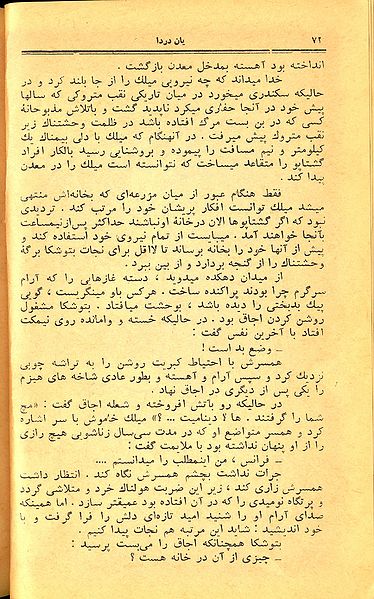 ۷۲
یان دردا
انداخته بود آهسته بمدخل معدن بازگشت .
خدا میداند که چه نیرویی میلك را از جا بلند کرد و در
حالیکه سکندری میخورد در میان تاریکی نقب متروکی که سالها
پیش خود در آنجا حفاری میکرد ناپدید گشت و باتلاش مذبوحانهٔ
کسی که در بن بست مرگ افتاده باشد در ظلمت وحشتناك زیر
نقب متروك پیش میرفت . در آنهنگام که میلك با دلی بیمناك یك
کیلومتر و نیم مسافت را پیموده و بروشنایی رسید بالکار افراد
گشتاپو را متقاعد میساخت که نتوانسته است میلك را در معدن
پیدا کند .
فقط هنگام عبور از میان مزرعه‌ای که بخانه‌اش منتهی
میشد میلك توانست افکار پریشان خود را مرتب کند . تردیدی
نبود که اگر گشتاپوها الان درخانهٔ اونباشند حداکثر پس‌ازنیمساعت
بآنجا خواهند آمد . میبایست از تمام نیروی خود استفاده کند و
پیش از آنها خود را بخانه برساند تا لااقل برای نجات بتوشکا برگهٔ
وحشتناك را از گنجه بردارد و از بین ببرد .
از میدان دهکده میدوید ، دسته غازهایی را که آرام
سرگرم چرا بودند پراکنده ساخت . هرکس باو مینگریست ، گویی
یك بدبختی را دیده باشد ، بوحشت میافتاد . بتوشکا مشغول
روشن کردن اجاق بود . در حالیکه خسته و وامانده روی نیمکت
افتاد با آخرین نفس گفت :
ـ وضع بد است !
همسرش با احتیاط کبریت روشن را به تراشه چوبی
نزدیك کرد و سپس آرام و آهسته و بطور عادی شاخه های هیزم
را یکی پس از دیگری در اجاق نهاد .
در حالیکه رو بآتش افروخته و شعله اجاق گفت : «مچ
شما را گرفتند . ها ؟ دینامیت ... ؟» میلك خاموش با سر اشاره
کرد و همسر متواضع او که در مدت سی‌سال زناشویی هیچ رازی
را از او پنهان نداشته بود با ملایمت گفت :
ـ فرانس ، من اینمطلب را میدانستم ....
جرأت نداشت بچشم همسرش نگاه کند . انتظار داشت
همسرش زاری کند ، زیر این ضربت هولناك خرد و متلاشی گردد
و پرتگاه نومیدی را که در آن افتاده بود عمیقتر سازد . اما همینکه
صدای آرام او را شنید امید تازه‌ای دلش را فرا گرفت و با
خود اندیشید : شاید این مرتبه هم نجات پیدا کنیم .
بتوشکا همچنانکه اجاق را می‌بست پرسید :
ـ چیزی از آن در خانه هست ؟